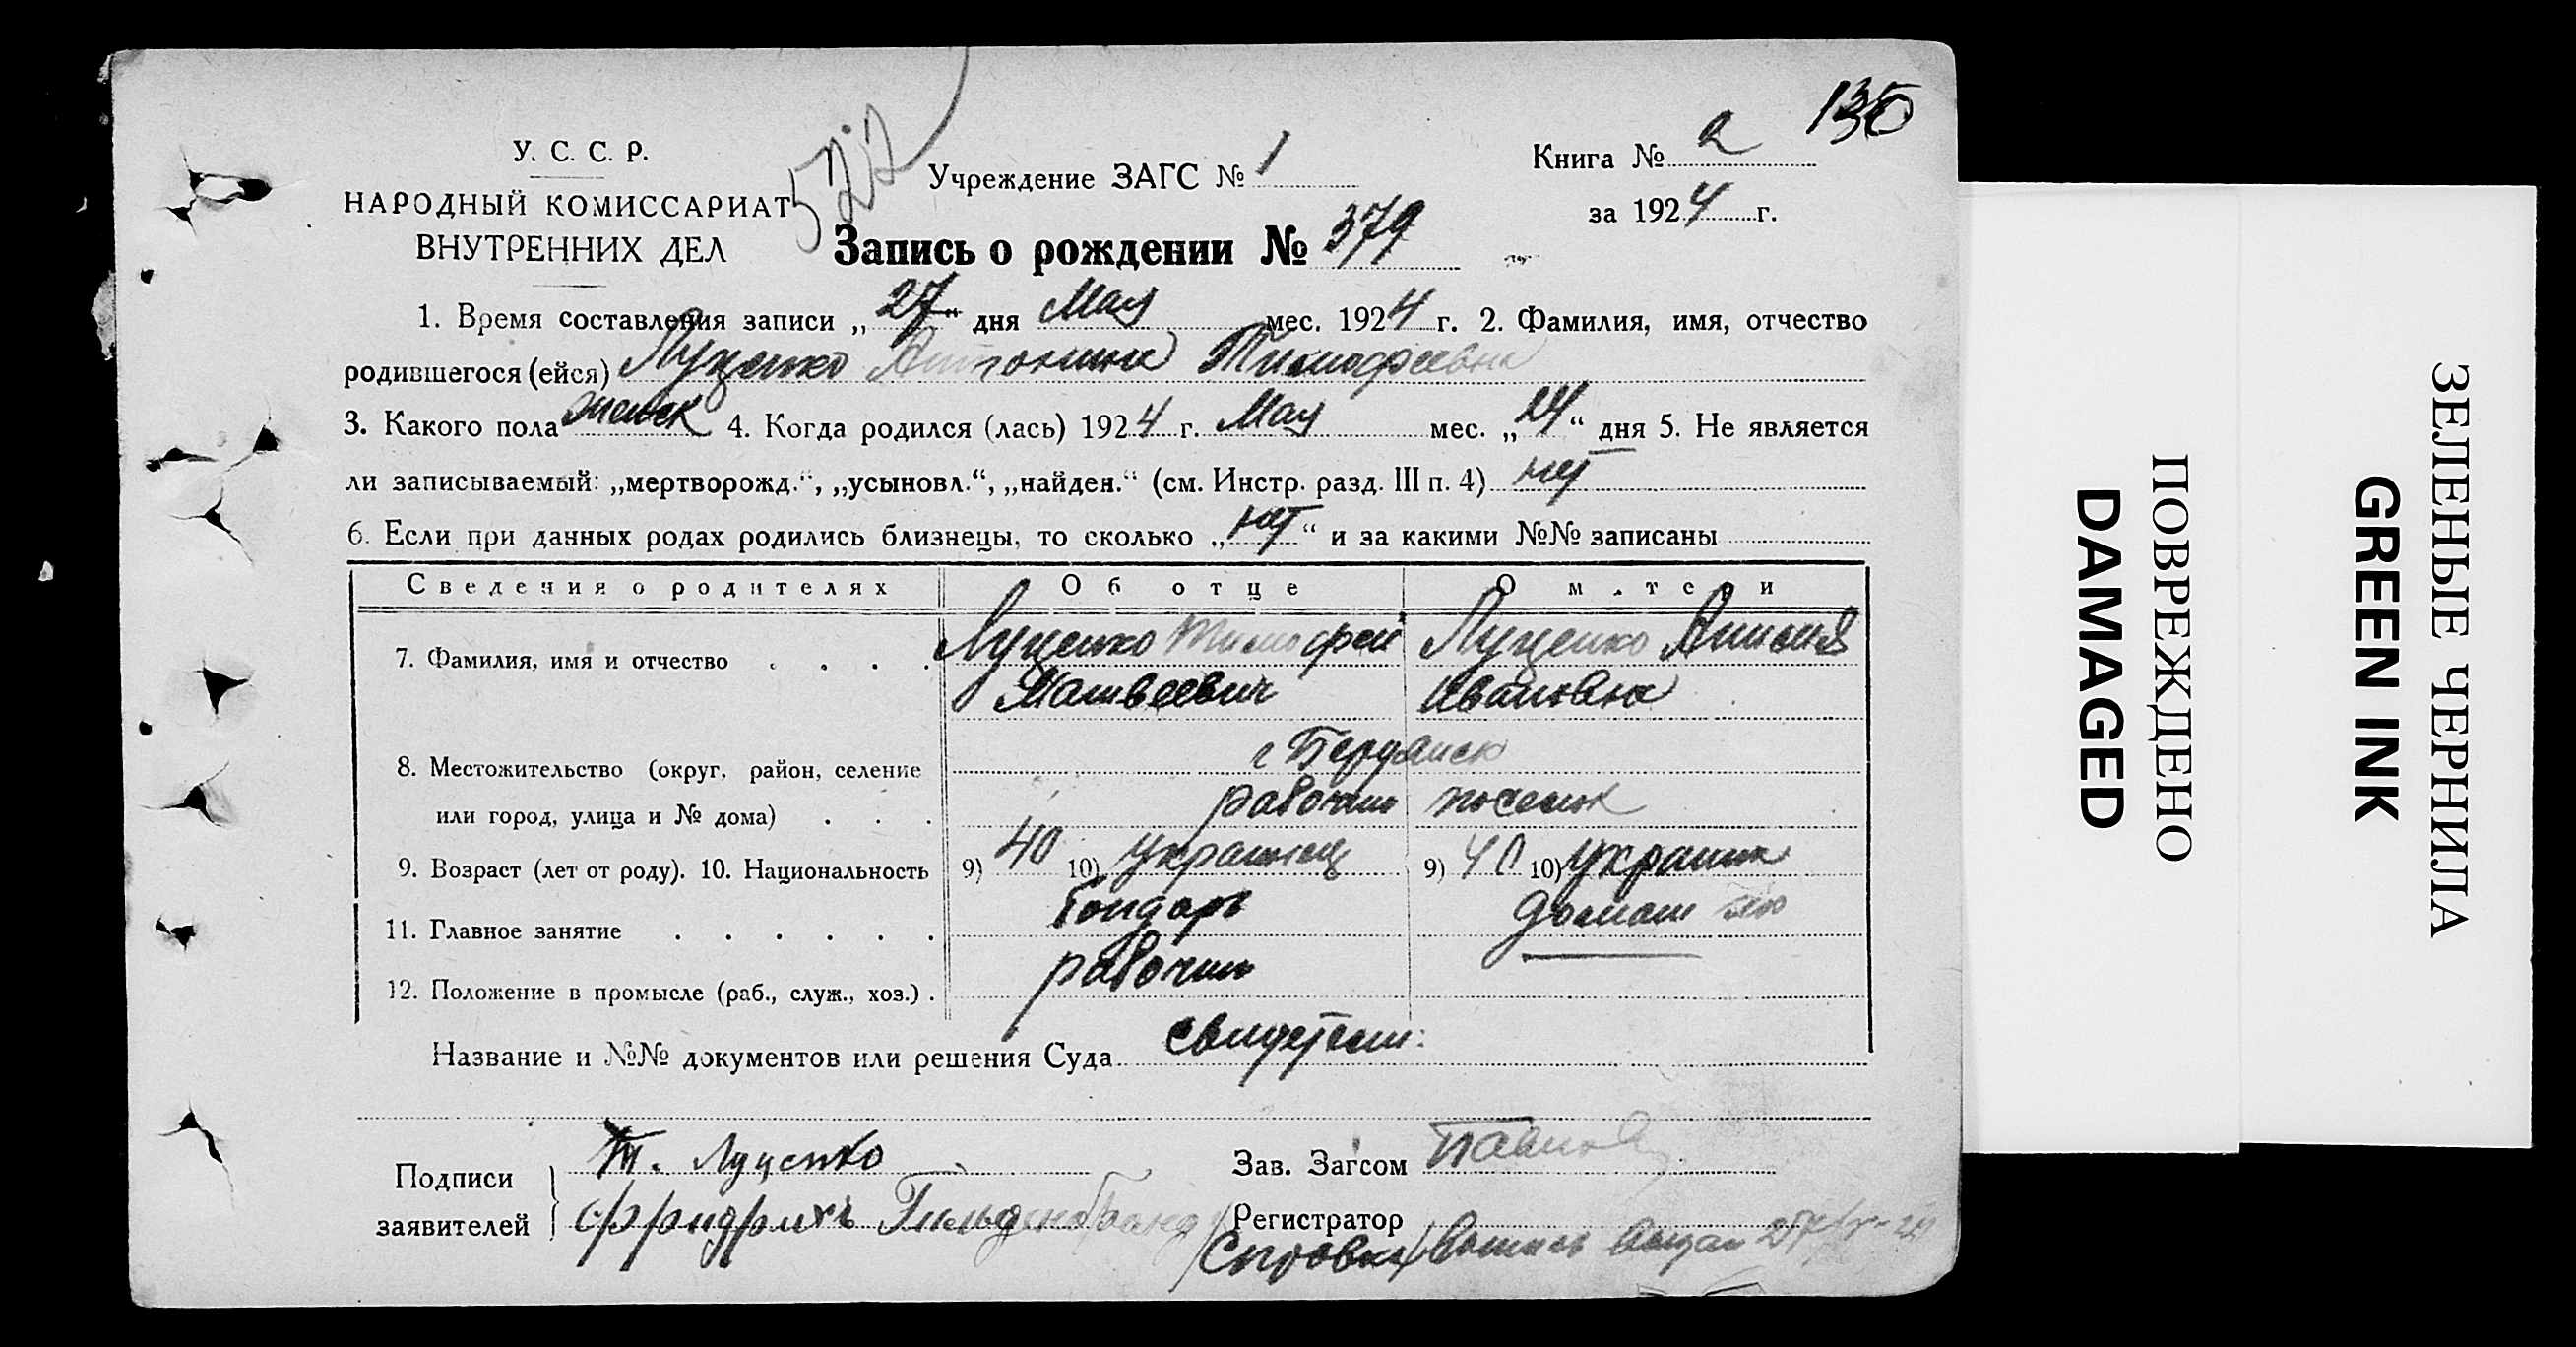 130
У. С. С. Р.
НАРОДНЫЙ КОМИССАРИАТ
ВНУТРЕННИХ ДЕЛ
522
Учреждение ЗАГС № 1
Книга № 2
за 1924 г.
Запись о рождении № 379
1. Время составления записи „27“ дня Мая мес. 1924 г. 2. Фамилия, имя, отчество
родившегося (ейся) Луценко Антонина Тимофеевна
3. Какого пола женск 4. Когда родился (лась) 1924 г. Мая мес. „24“ дня 5. Не является
ли записываемый: „мертворожд.“, „усыновл.“, „найден.“ (см. Инстр. разд. III п. 4) нет
6. Если при данных родах родились близнецы, то сколько „нет“ и за какими №№ записаны
Сведения о родителях Об отце О м.тери
7. Фамилия, имя и отчество . . . . Луценко Тимофей Луценко
Матвеевич Ивановна
8. Местожительство (округ, район, селение г Бердянск
или город, улица и № дома) . . . рабочий поселок
9. Возраст (лет от роду). 10. Национальность 9) 40 10) украинец 9) 40 10) украинк
11. Главное занятие . . . . . . Бондарь домаш
12. Положение в промысле (раб., служ., хоз.) . рабочий
Название и №№ документов или решения Суда свидетели:
Подписи заявителей
Т. Луценко
Фридрихъ Гильденбранд
Зав. Загсом Павлов
Регистратор
Справка
ПОВРЕЖДЕНО
DAMAGED
ЗЕЛЕНЫЕ ЧЕРНИЛА
GREEN INK